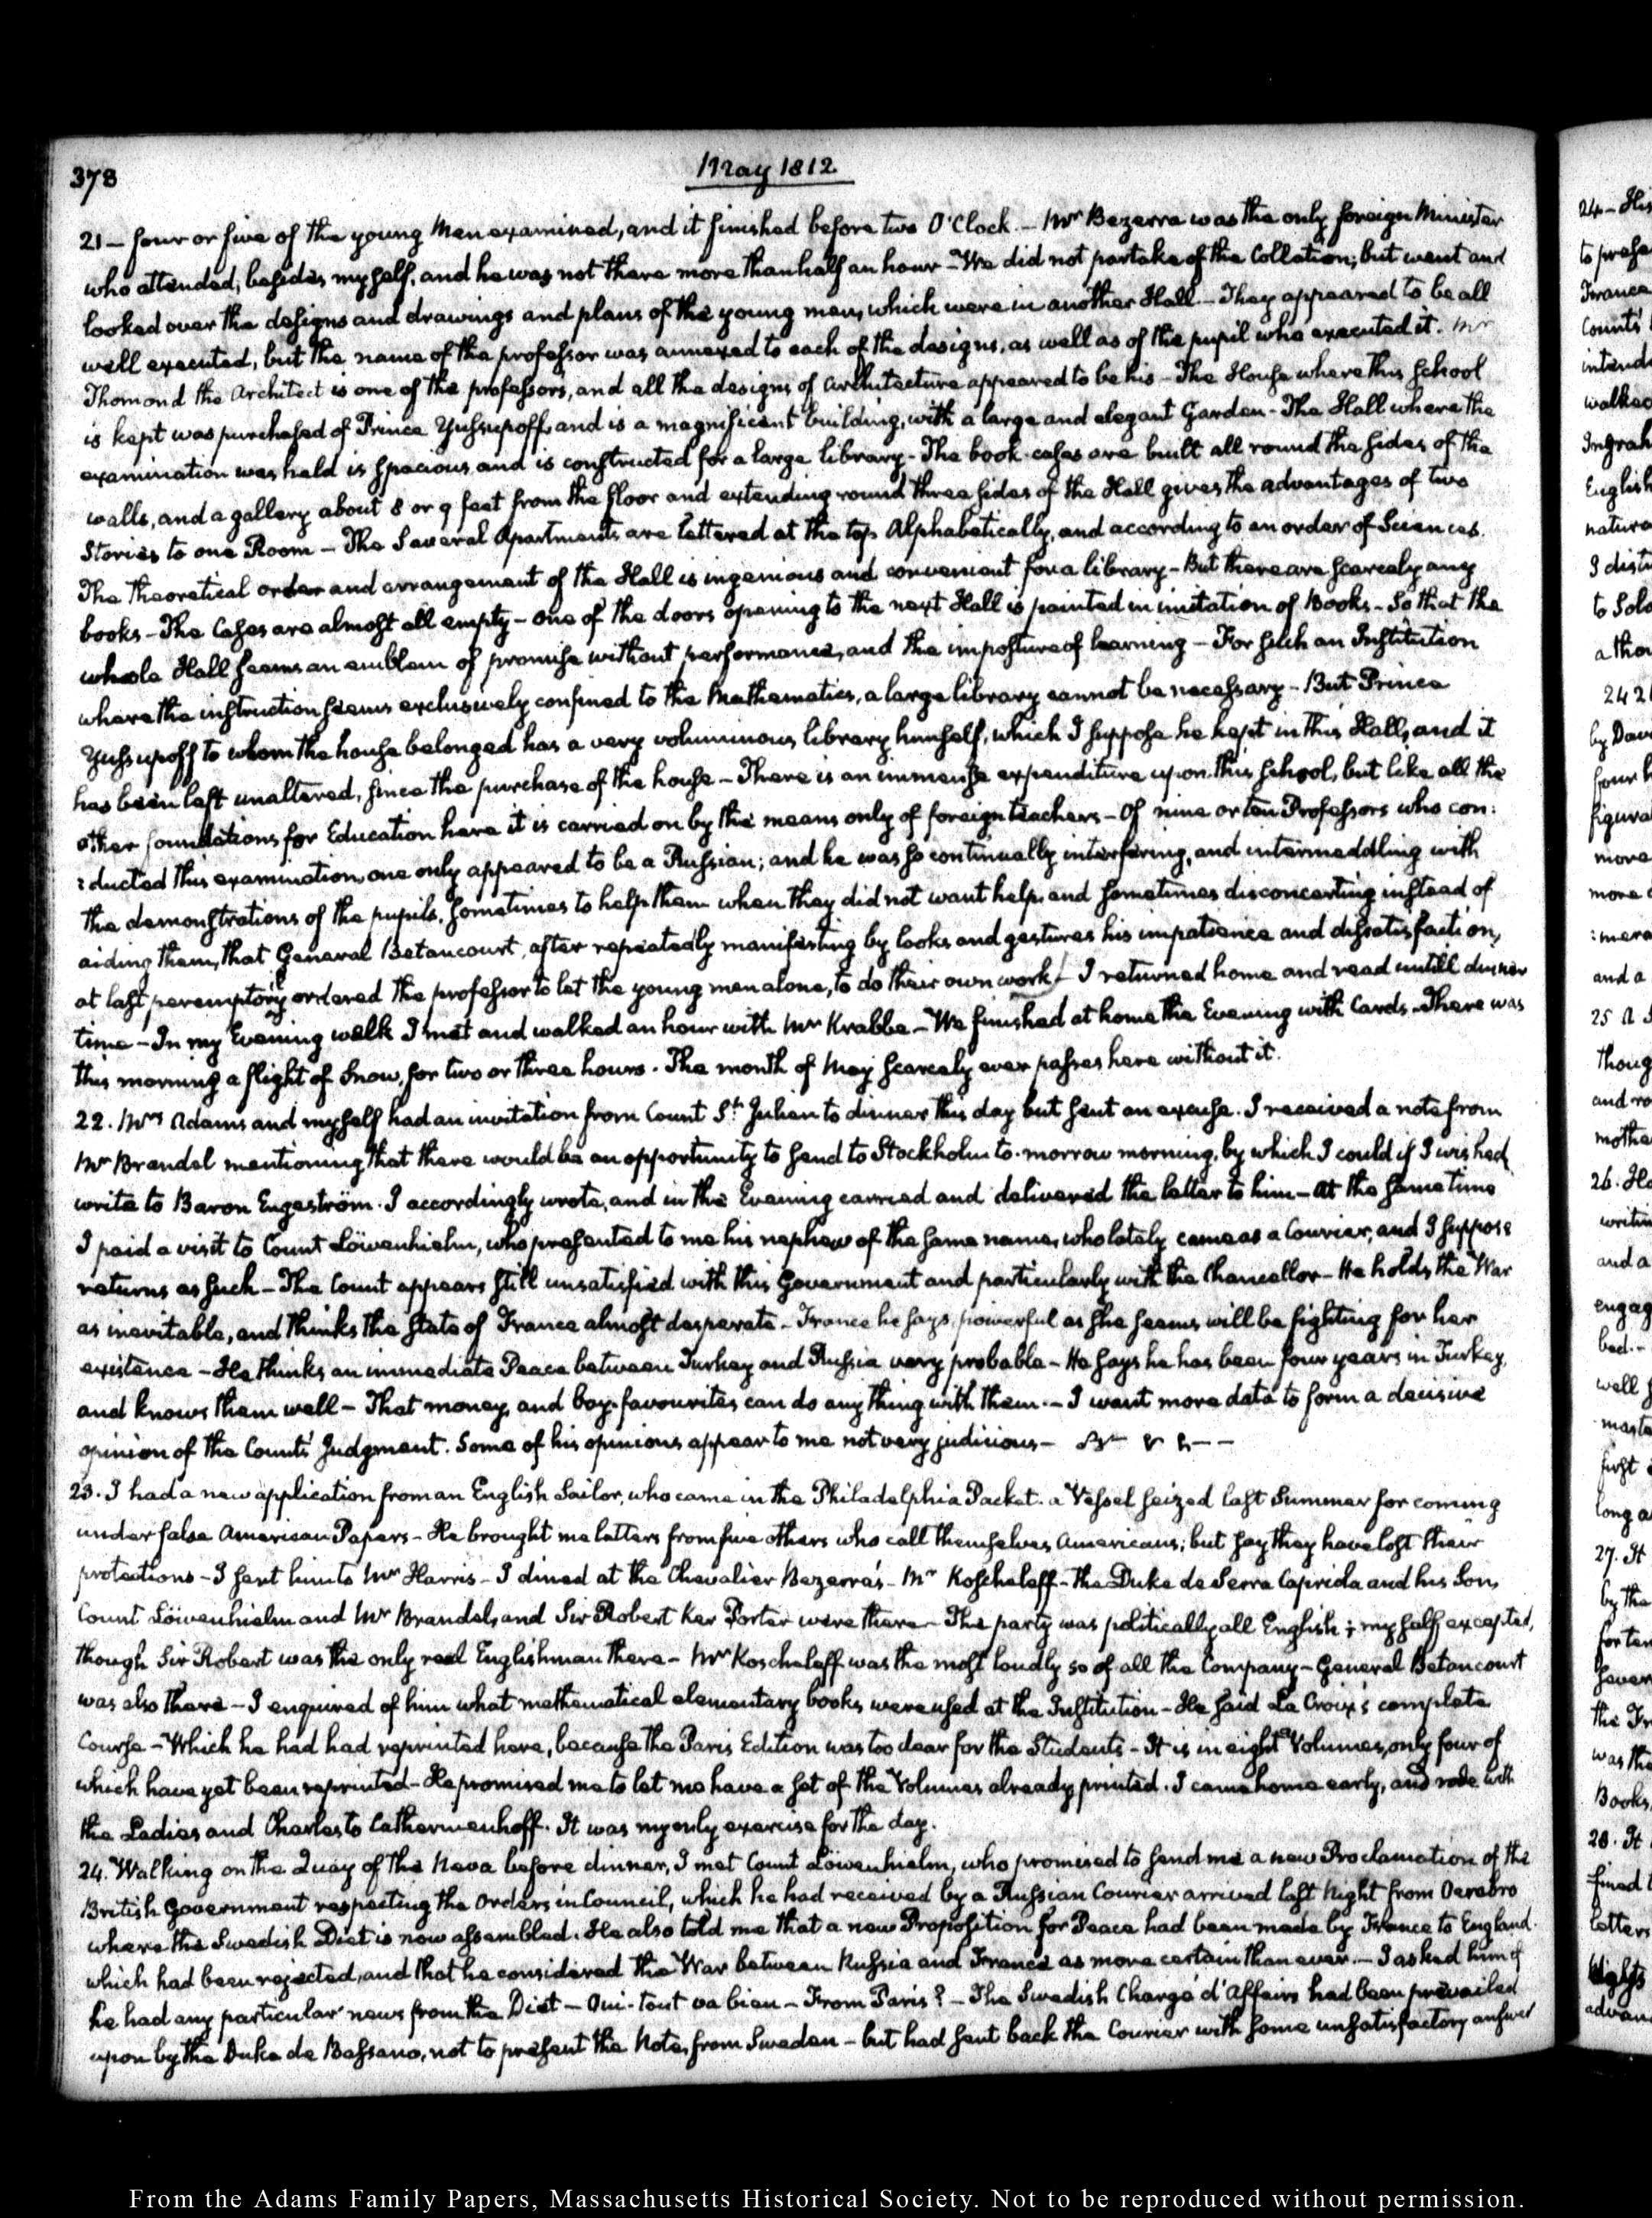 378
May 1812
21 — four or five of the young Men examined, and it finished before two O'Clock. — Mr Bezerra was the only foreign Minister
who attended, besides myself, and he was not there more than half an hour — We did not partake of the Collation; but went and
looked over the designs and drawings and plans of the young men, which were in another Hall — They appeared to be all
well executed, but the name of the professor was annexed to each of the designs, as well as of the pupil who executed it. Mr
Thomond the Architect is one of the professors, and all the designs of Architecture appeared to be his — The House where this School
is kept was purchased of Prince Yussupoff, and is a magnificent building, with a large and elegant Garden — The Hall where the
examination was held is spacious, and is constructed for a large library — The book-cases are built all round the sides of the
walls, and a gallery about 8 or 9 feet from the floor and extending round three sides of the Hall gives the advantages of two
Stories to one Room — The Several Apartments are lettered at the top Alphabetically, and according to an order of Sciences.
The theoretical order and arrangement of the Hall is ingenious and convenient for a library — But there are scarcely any
books — The Cases are almost all empty — one of the doors opening to the next Hall is painted in imitation of Books — So that the
whole Hall seems an emblem of promise without performance, and the imposture of learning — For such an Institution
where the instruction seems exclusively confined to the Mathematics, a large library cannot be necessary — But Prince
Yussupoff to whom the house belonged has a very voluminous library himself, which I suppose he kept in this Hall, and it
has been left unaltered, since the purchase of the house — There is an immense expenditure upon this school, but like all the
other foundations for Education here it is carried on by the means only of foreign teachers — Of nine or ten Professors who con:
:ducted this examination one only appeared to be a Russian; and he was so continually interfering, and intermeddling with
the demonstrations of the pupils, sometimes to help them when they did not want help, and sometimes disconcerting instead of
aiding them, that General Betancourt, after repeatedly manifesting by looks and gestures his impatience and dissatisfaction,
at last peremptorily ordered the professor to let the young men alone, to do their own work — I returned home and read untill dinner
time — In my Evening walk I met and walked an hour with Mr Krabbe — We finished at home the Evening with Cards — There was
this morning a flight of Snow, for two or three hours. The month of May scarcely ever passes here without it.
22. Mrs Adams and myself had an invitation from Count St Julien to dinner this day but sent an excuse. I received a note from
Mr Brandel mentioning that there would be an opportunity to send to Stockholm to-morrow morning, by which I could if I wished
write to Baron Engeström. I accordingly wrote, and in the Evening carried and delivered the letter to him — At the same time
I paid a visit to Count Löwenhielm, who presented to me his nephew of the same name, who lately came as a Courier, and I suppose
returns as such — The Count appears still unsatisfied with this Government and particularly with the Chancellor — He holds the War
as inevitable, and thinks the state of France almost desperate — France he says, powerful as she seems will be fighting for her
existence — He thinks an immediate Peace between Turkey and Russia very probable — He says he has been four years in Turkey,
and knows them well — That money, and boy-favourites can do any thing with them. — I want more data to form a decisive
opinion of the Counts' Judgment. Some of his opinions appear to me not very judicious —
23. I had a new application from an English Sailor, who came in the Philadelphia Packet. a Vessel seized last Summer for coming
under false American Papers — He brought me letters from five others who call themselves Americans; but say they have lost their
protections — I sent him to Mr Harris — I dined at the Chevalier Bezerra's — Mr Koscheleff — the Duke de Serra Capriola and his Son,
Count Löwenhielm and Mr Brandel, and Sir Robert Ker Porter were there — The party was politically all English; myself excepted,
though Sir Robert was the only real Englishman there — Mr Koscheleff was the most loudly so of all the Company — General Betancourt
was also there — I enquired of him what mathematical elementary books were used at the Institution — He said La Croix's complete
Course — Which he had had reprinted here, because the Paris Edition was too dear for the Students — It is in eight Volumes, only four of
which have yet been reprinted — He promised me to let me have a set of the Volumes already printed. I came home early, and rode with
the Ladies and Charles to Catherinenhoff. It was my only exercise for the day.
24. Walking on the Quay of the Neva before dinner, I met Count Löwenhielm, who promised to send me a new Proclamation of the
British Government respecting the Orders in Council, which he had received by a Russian Courier arrived last Night from Oerebro
where the Swedish Diet is now assembled. He also told me that a new Proposition for Peace had been made by France to England
which had been rejected, and that he considered the War between Russia and France as more certain than ever. — I asked him if
he had any particular news from the Diet — Oui — tout va bien — From Paris? — The Swedish Chargé d'Affairs had been prevailed
upon by the Duke de Bassano, not to present the Note, from Sweden — but had sent back the Courier with some unsatisfactory answer
From the Adams Family Papers, Massachusetts Historical Society. Not to be reproduced without permission.